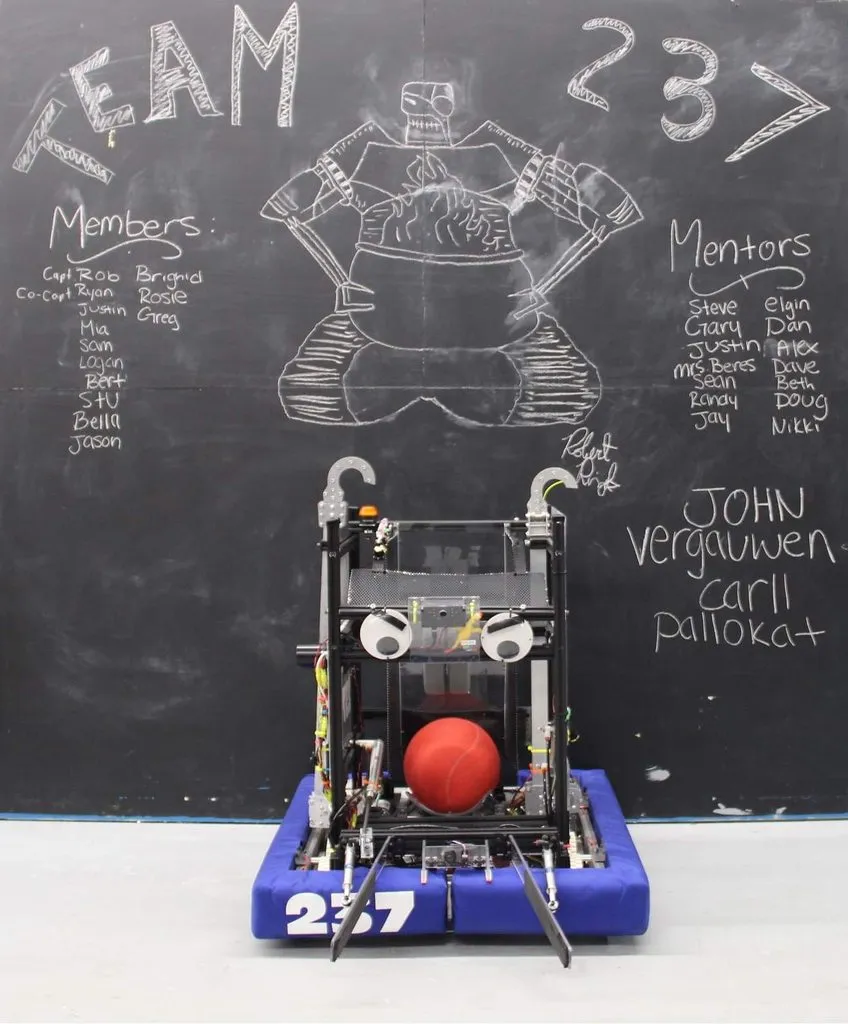 TEAM 237
Members:
Capt Rob
Co-Capt Ryan
Justin
Mia
Sam
Logan
Bert
Stu
Bella
Jason
Brighid
Rosie
Greg
Mentors
Steve
Gary
Justin
Mrs Beres
Sean
Randy
Jay
elgin
Dan
Alex
Dave
Beth
Doug
Nikki
Robert
JOHN
vergauwen
carll
pallokat
237